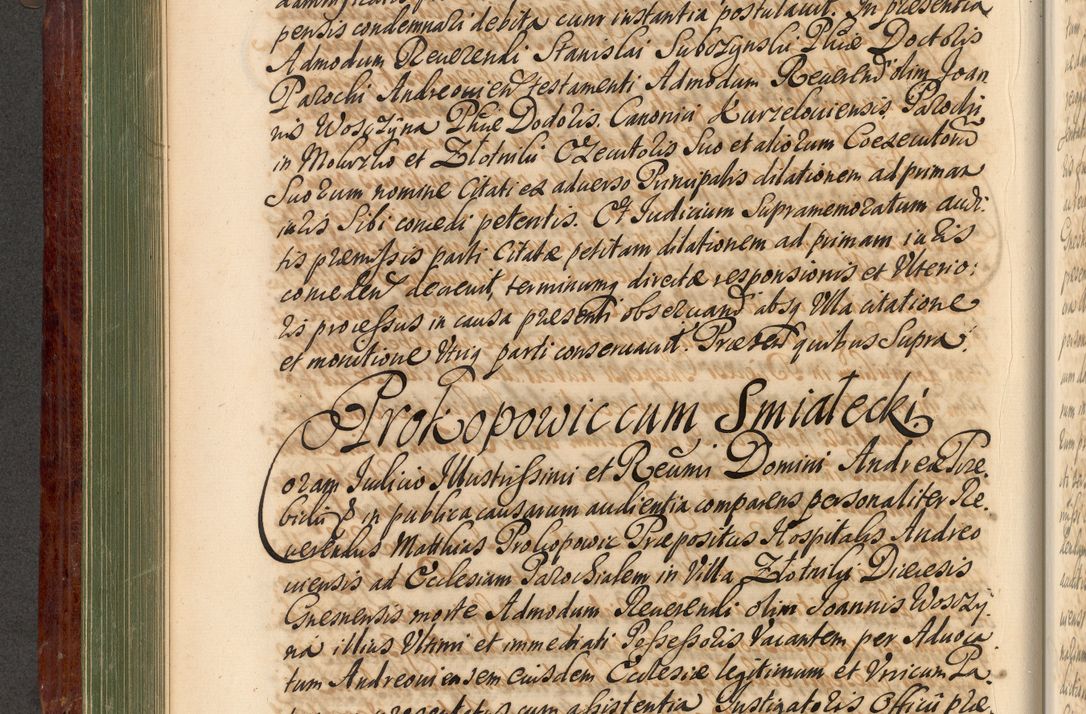 pensis condemnari debita cum instantia postulavit. In præsentia
Admodum Reverendi Stanislai Subozynski Phiæ Doctoris
Parochi Andreovien testamenti Admodum Reverend olim Joan
nis Wosczyna Phiæ Doctoris. Canonici Kurzeloviensis, Parochi
in Mokrzko et Złotniki Executoris Suo et aliorum Coexecutorū
Suorum nomine Citati ex adverso Principalis dilationem ad primam
iuris Sibi concedi petentis. Et Judicium Supramemoratum audi-
tis præmissis parti Citatæ petitam dilationem ad primam iuris
conceden decrevit, terminumq directæ responsionis et Ulterio-
ris processus in causa præsenti observand absq Ulla citatione
et monitione Utriq parti conservavit. Præsen quibus Supra.
Prokopowic cum Smiałecki
Coram Judicio Illustrissimi et Reūmi Domini Andreæ Tre-
bicki & in publica causarum audientia comparens personaliter Re-
verendus Matthias Prokopowic Præpositus Hospitalis Andreo
viensis ad Ecclesiam Parochialem in Villa Złotniki Diœcesis
Gnesnensis morte Admodum Reverendi olim Joannis Wosczy
na illius Ultimi et immediati Possessoris Vacantem per Advoca
tum Andreoviensem eiusdem Ecclesiæ legitimum et Unicum Pa-
cum assistentia Instigatoris Officii præ-